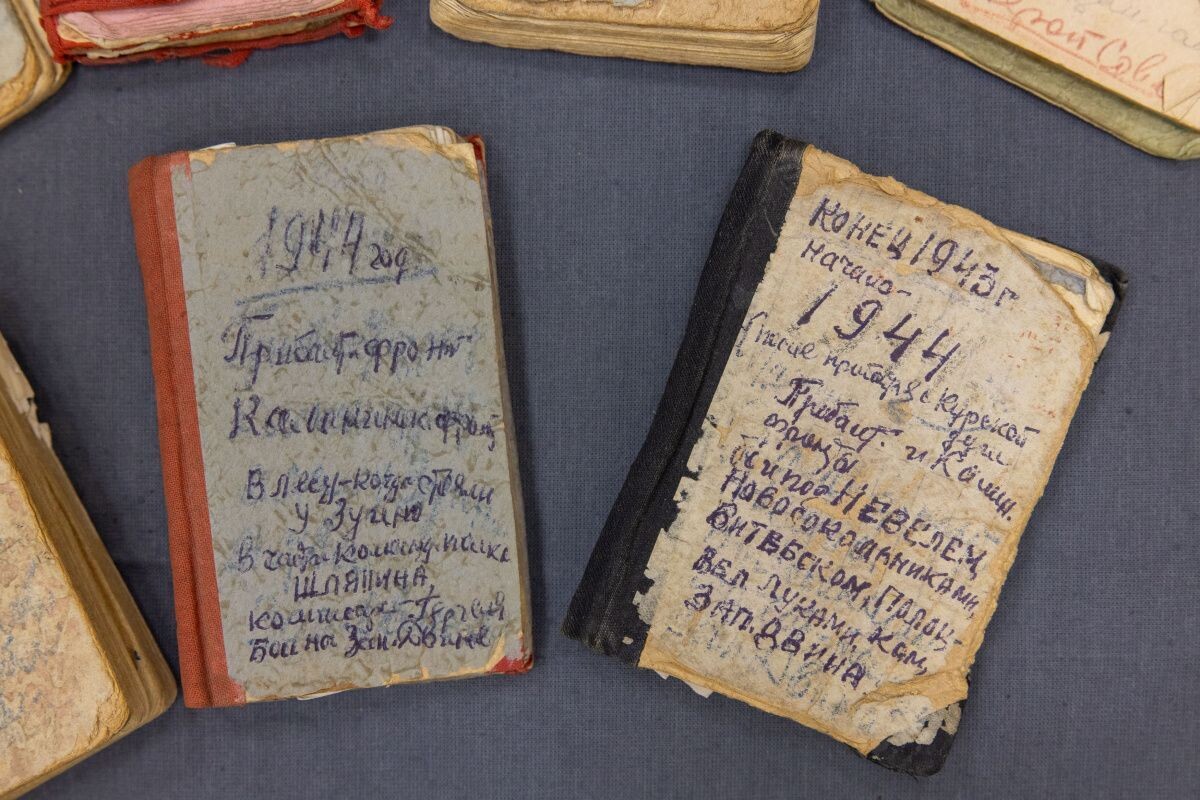 1944 год
Прибалт. фронт
Калининск фронт
В лесу - когда стояли
у Зугино
В части команд. полка
ШЛЯПИНА,
комиссар
Бои на Зап. Двине
КОНЕЦ 1943 г
начало -
1944
после Курской
дуги
Прибалт. и Калин.
фронты
Бои под НЕВЕЛЕМ,
Новосокольниками,
ВИТЕБСКОМ, Полоц-
Вел. Луками, ком,
ЗАП. ДВИНА